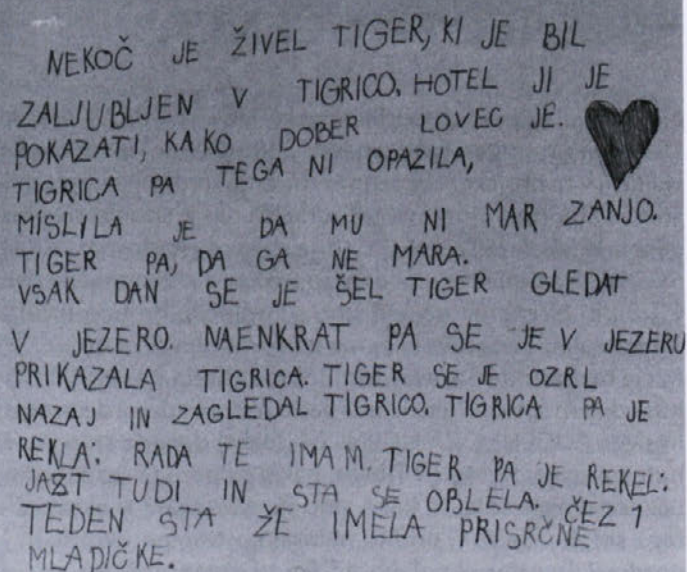 NEKOČ JE ŽIVEL TIGER, KI JE BIL
ZALJUBLJEN V TIGRICO. HOTEL JI JE
POKAZATI, KAKO DOBER LOVEC JE.
TIGRICA PA TEGA NI OPAZILA,
MISLILA JE DA MU NI MAR ZANJO.
TIGER PA, DA GA NE MARA.
VSAK DAN SE JE ŠEL TIGER GLEDAT
V JEZERO. NAENKRAT PA SE JE V JEZERU
PRIKAZALA TIGRICA. TIGER SE JE OZRL
NAZAJ IN ZAGLEDAL TIGRICO. TIGRICA PA JE
REKLA: RADA TE IMAM. TIGER PA JE REKEL:
JAZT TUDI IN STA SE OBLELA. ČEZ 1
TEDEN STA ŽE IMELA PRISRČNE
MLADIČKE.